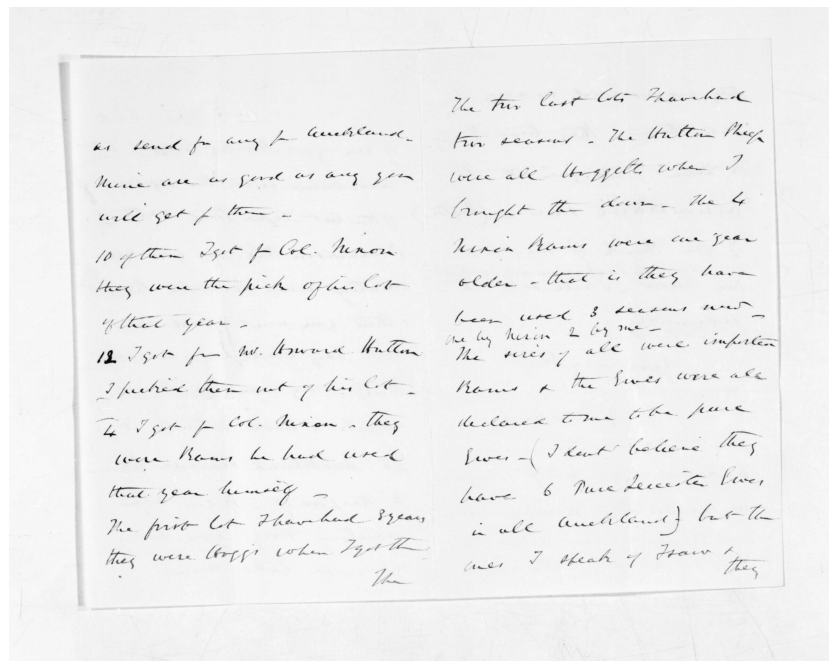 as send for any fr Auckland -
Mine are as good as any you
will get fr there -
10 of them I got fr Col. Nixon
they were the pick of his lot
of that year -
12 I got from Mr. Howard Hutton
I picked them out of his lot -
4 I got fr Col. Nixon - they
were Rams he had used
that year himself -
The first lot I have had 3 years
they were Hoggs when I got them
The
The two last lots I have had
two seasons - The Hutton Sheep
were all Hoggetts when I
brought them down - The 4
Nixon Rams were one year
older - that is they have
been used 3 seasons now -
one by Nixon 2 by me -
The sires of all were imported
Rams & the Ewes were all
declared to me to be pure
Ewes - (I dont believe they
have 6 Pure Leicester Ewes
in all Auckland) but the
ones I speak of I saw &
they